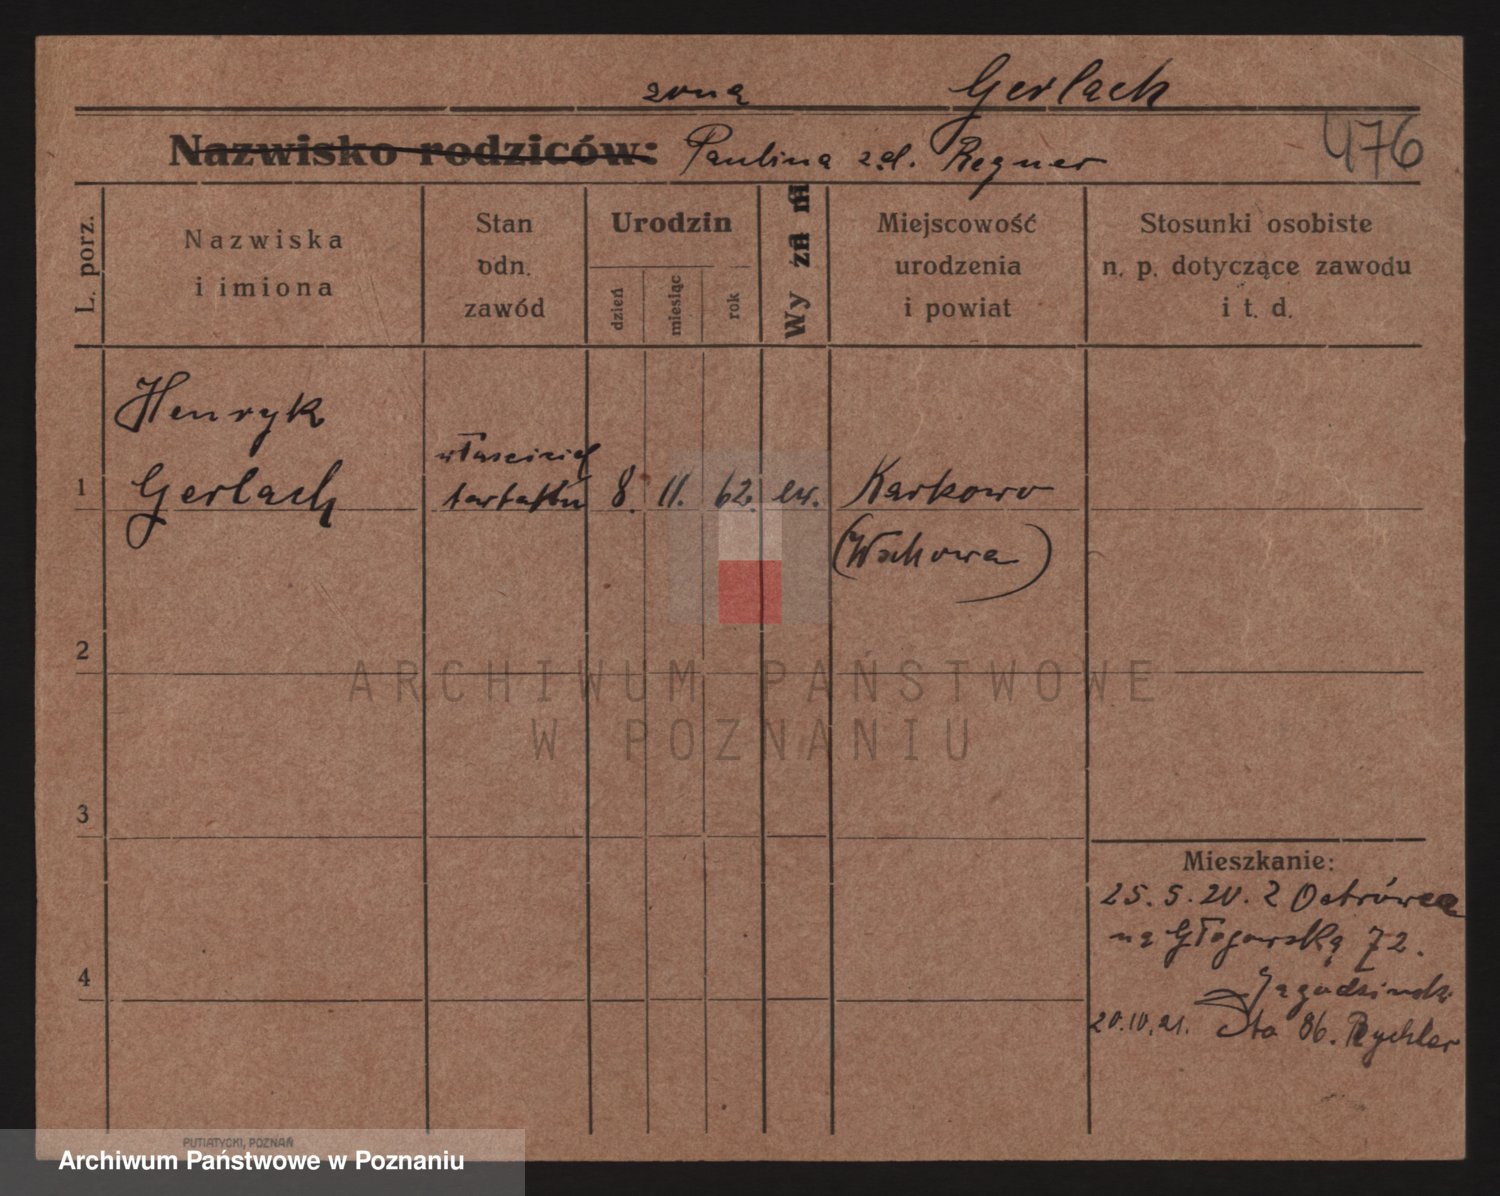 żona Gerlach
Nazwisko rodziców: Paulina zd. Regner
476
L. porz.
Nazwiska
i imiona
Stan
odn.
zawód
Urodzin
dzień
miesiąc
rok
Wyzna
Miejscowość
urodzenia
i powiat
Stosunki osobiste
n. p. dotyczące zawodu
i t. d.
Henryk
1 Gerlach
właściciel
tartaku
8. 11. 62. ew.
Karkowo
2
3
4
Mieszkanie:
25. 5. 20. Z Ostrówca
na Głogowską 72.
Jagodzinski
20.IV.21. Dto 86. Rychler
ARCHIWUM PAŃSTWOWE
W POZNANIU
PUTIATYCKI, POZNAŃ
Archiwum Państwowe w Poznaniu